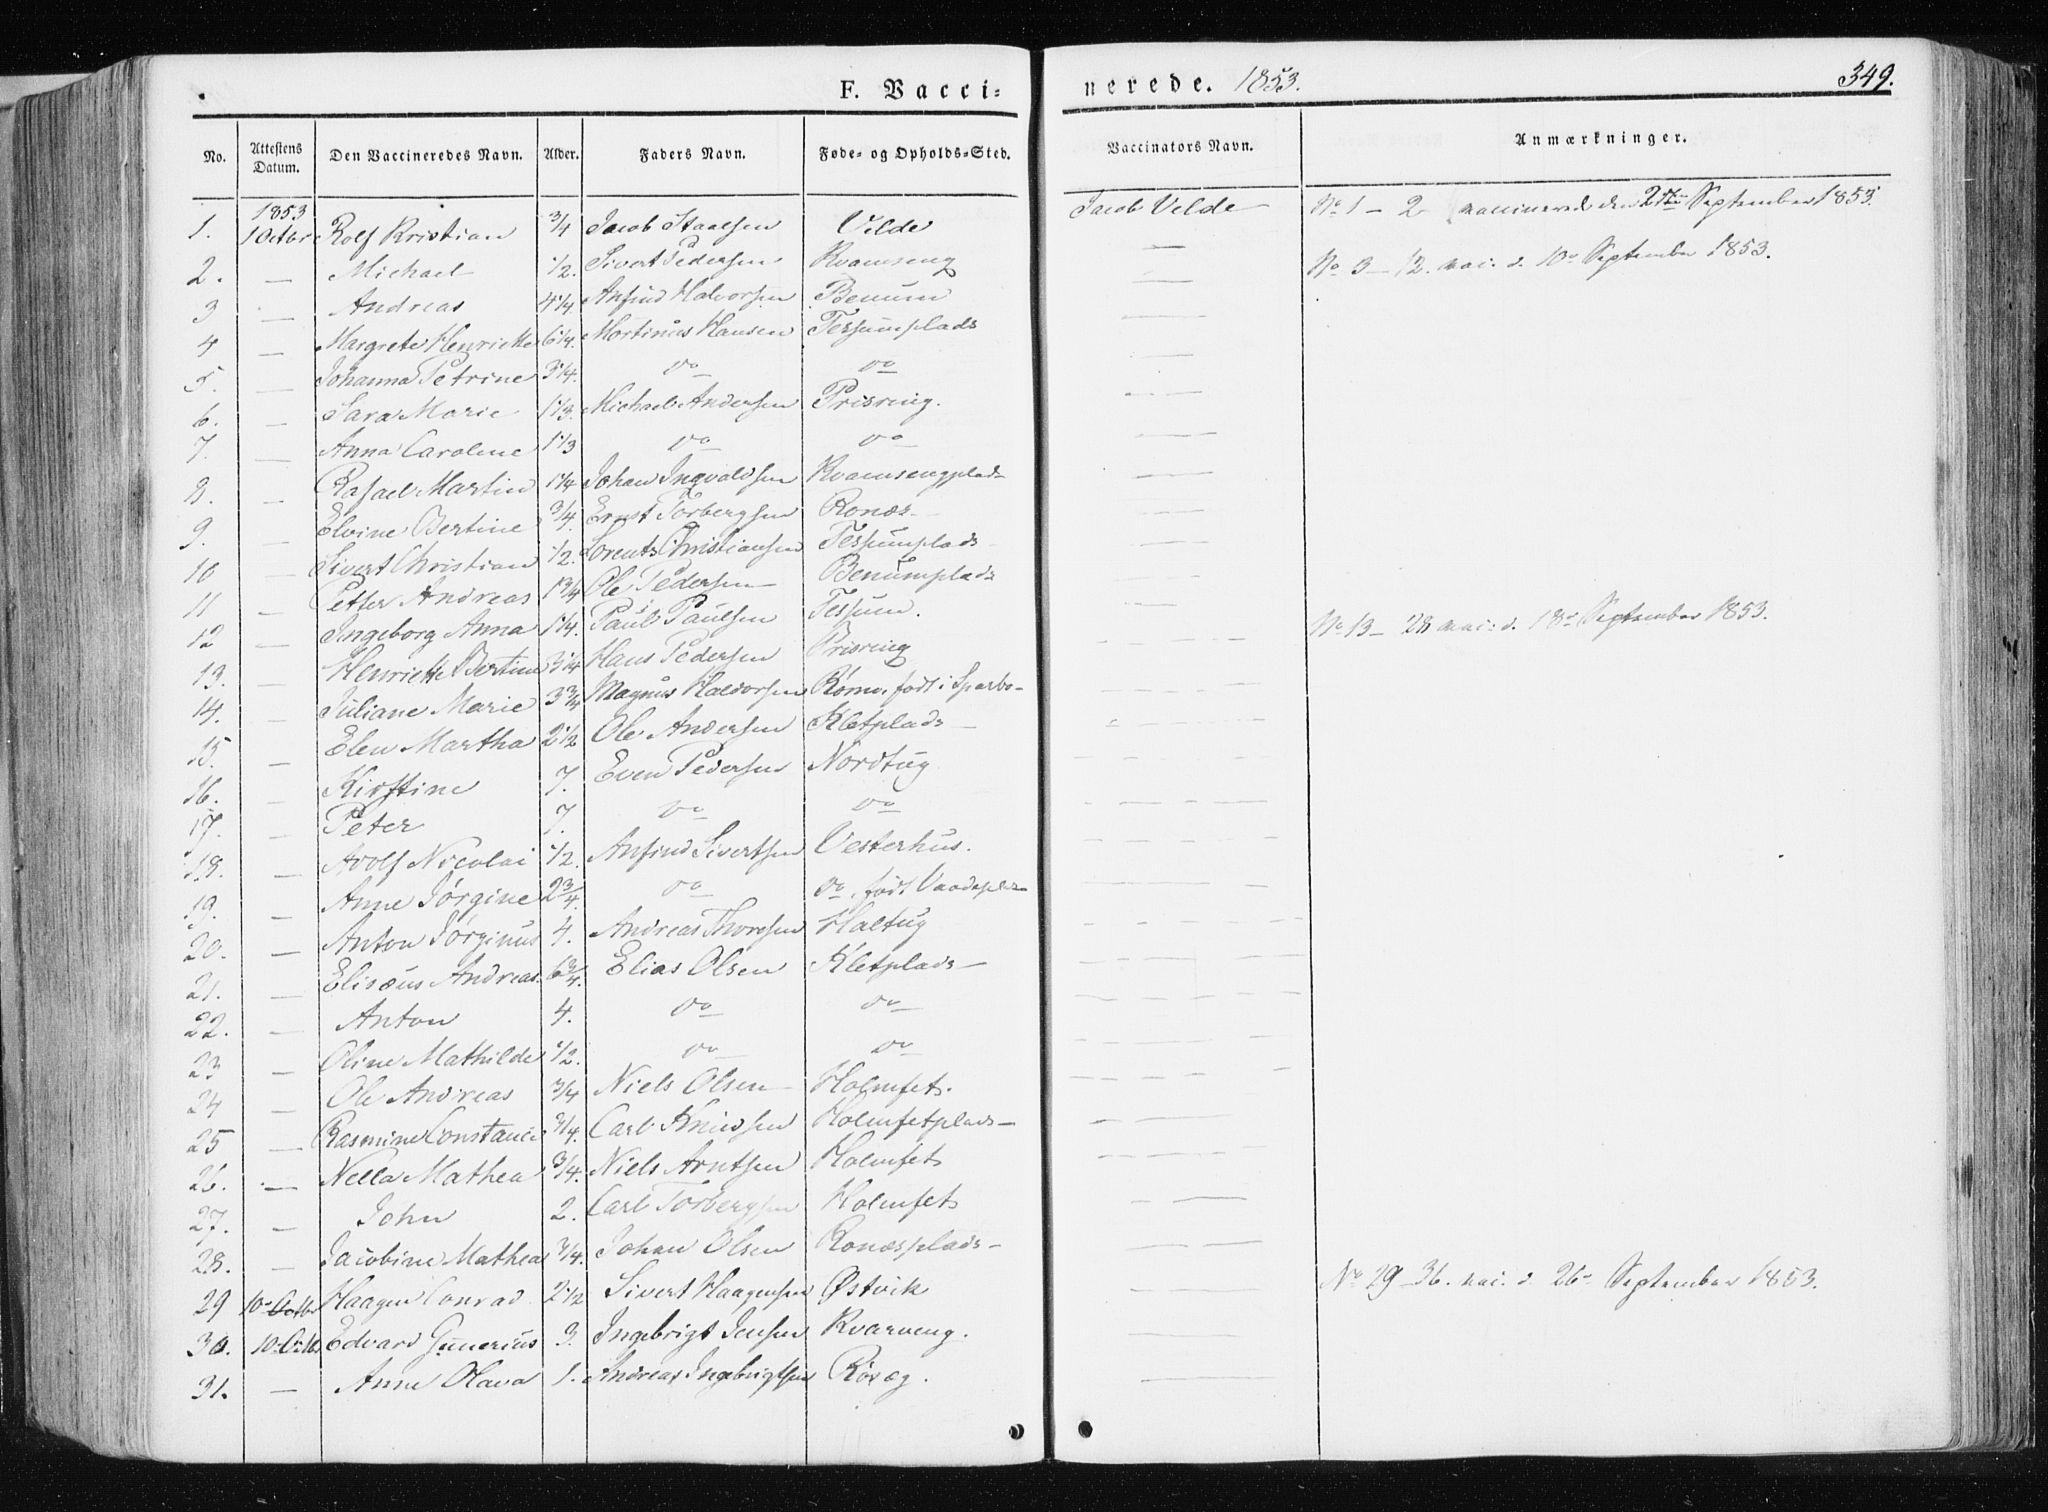 F. Vacci-nerede. 1853. 349.
No. Attestens Datum. Den Vaccineredes Navn. Alder. Faders Navn. Føde- og Opholds-Sted. Vaccinators Navn. Anmærkninger.
1. 1853 1 Octbr Rolf Kristian 3/4 Jacob Staalsen Velde Jacob Velde No 1 - 2 vaccinered den September 1853.
2. — Michael 1/2. Sivert Pedersen Kvamseng — No 3 - 12. vac. d. 10de September 1853.
3 — Andreas 4 1/4. Anfind Halvorsen Benum —
4 — Margrete Henriette 6 1/4. Mortinus Hansen Tessumplads —
5. — Johanna Petrine 3 1/4. do do —
6. — Sara Marie 1 1/3. Michael Andersen Prisring. —
7. — Anna Caroline 1 1/3 do do —
8. — Rafael Martin 1 1/4 Johan Ingvaldsen Kvamsengplads —
9. — Elvine Bertine 3/4. Ernst Torbergsen Ronæs —
10 — Sivert Christian 1/2. Lorents Christiansen Tessumplads —
11 — Petter Andreas 1 3/4 Ole Pedersen Benumplads —
12 — Ingeborg Anna 1 1/4. Paul Paulsen Tessum. — No 13 - 28 vac. d. 18de September 1853.
13. — Henriette Bertine 3 1/4 Hans Pedersen Prisring —
14. — Juliane Marie 3 3/4 Magnus Haldorsen Rømo, født i Sparbo —
15. — Elen Martha 2 1/2 Ole Andersen Kletplads —
16. — Kirstine 7. Even Pedersen Nordtug —
17. — Peter 7. do do —
18. — Adolf Nicolai 1/2. Anfind Sivertsen Vesterhus. —
19. — Anne Jørgine 2 3/4. do do, født —
20. — Anton Jørginus 4. Andreas Thoresen Haltug —
21. — Elisæus Andreas. 6 3/4. Elias Olsen Kletplads —
22. — Anton 4. do do —
23 — Oline Mathilde 1/2. do do —
24 — Ole Andreas 3/4 Niels Olsen Holmset. —
25 — Rasmine Constance 3/4. Carl Knudsen Holmsetplads —
26. — Nella Mathea 3/4. Niels Arntsen Holmset —
27. — John 2. Carl Torbergsen Holmset —
28. — Jacobine Mathea 3/4. Johan Olsen Ronæsplads —
29 10 Octbr Haagen Conrad 2 1/2 Sivert Haagensen Østvik — No 29 - 36. vac. d. 26de September 1853.
30. 10 Octbr Edvard Gunerius 3. Ingebrigt Jensen Kvarveng. —
31. — Anne Olava 1. Andreas Ingebrigtsen —